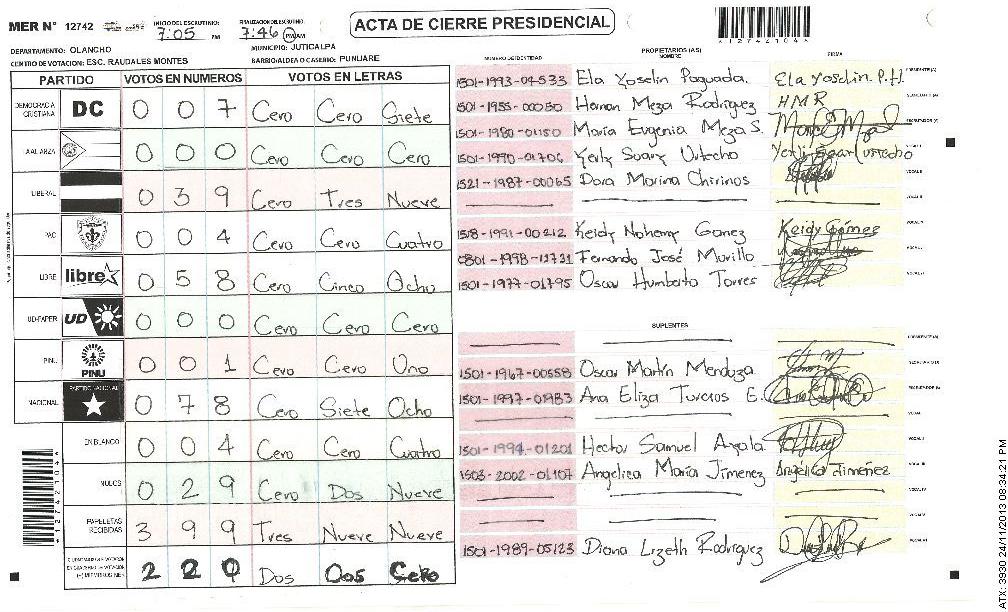 MER N° 12742
INICIO DEL ESCRUTINIO:
7:05 PM
FINALIZACION DEL ESCRUTINIO:
7:46 PM/AM
ACTA DE CIERRE PRESIDENCIAL
*12742104*
DEPARTAMENTO: OLANCHO
MUNICIPIO: JUTICALPA
CENTRO DE VOTACION: ESC. RAUDALES MONTES
BARRIO/ALDEA O CASERIO: PUNUARE
PARTIDO VOTOS EN NUMEROS VOTOS EN LETRAS
DEMOCRACIA CRISTIANA DC 0 0 7 Cero Cero Siete
ALIANZA 0 0 0 Cero Cero Cero
LIBERAL 0 3 9 Cero Tres Nueve
PAC 0 0 4 Cero Cero Cuatro
LIBRE libre 0 5 8 Cero Cinco Ocho
UD-FAPER UD 0 0 0 Cero Cero Cero
PINU PINU 0 0 1 Cero Cero Uno
NACIONAL PARTIDO NACIONAL 0 7 8 Cero Siete Ocho
EN BLANCO 0 0 4 Cero Cero Cuatro
NULOS 0 2 9 Cero Dos Nueve
PAPELETAS RECIBIDAS 3 9 9 Tres Nueve Nueve
2 2 0 Dos Dos Cero
*12742104*
NUMERO DE IDENTIDAD PROPIETARIOS (AS) NOMBRE FIRMA
1501-1993-04533 Ela Yoselin Paguada. Ela Yoselin P.H. PRESIDENTE (A)
1501-1955-00050 Hernan Meza Rodriguez HMR SECRETARIO (A)
1501-1980-01150 Maria Eugenia Meza S. ESCRUTADOR (A)
1501-1990-01706 Yerly Suany Urtecho VOCAL I
1521-1987-00065 Dora Marina Chirinos VOCAL II
VOCAL III
1518-1991-00212 Keidy Nohemy Gomez Keidy Gómes VOCAL IV
0801-1998-12721 Fernando José Murillo VOCAL V
1501-1977-01795 Oscar Humberto Torres VOCAL VI
SUPLENTES
PRESIDENTE (A)
1501-1967-00558 Oscar Martín Mendoza SECRETARIO (A)
1501-1997-01983 Ana Eliza Turcios E. ESCRUTADOR (A)
VOCAL I
1501-1994-01201 Hector Samuel Ayala VOCAL II
1503-2002-01107 Angelica María Jimenez Angélica Jiménez VOCAL III
VOCAL IV
VOCAL V
1501-1989-05123 Diana Lizeth Rodriguez VOCAL VI
ATX: 3930 24/11/2013 08:34:21 PM